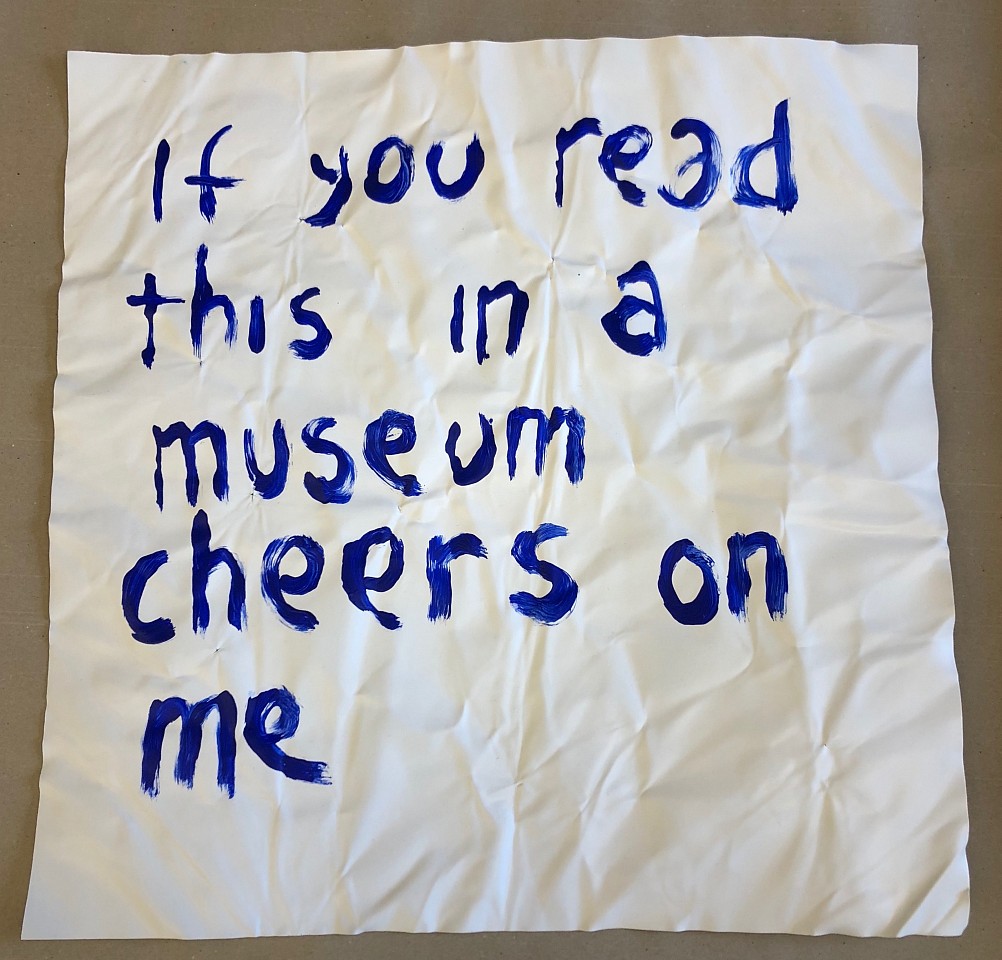 If you read
this in a
museum
cheers on
me